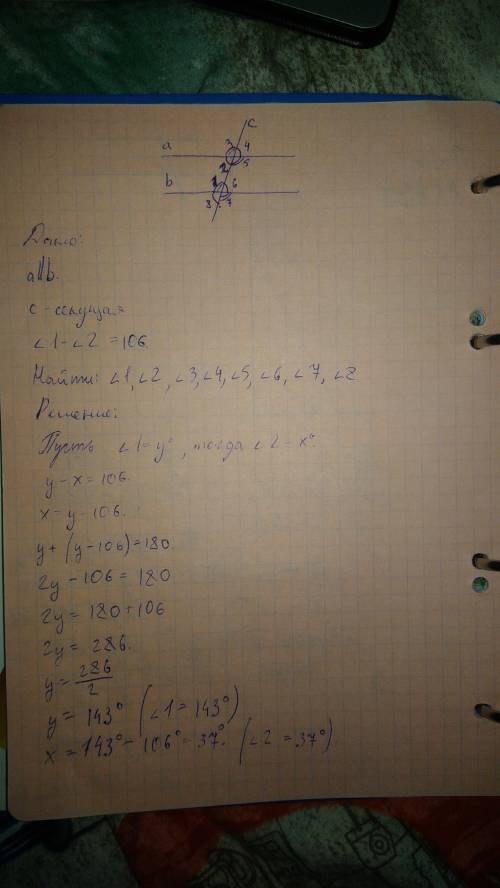 c
a 3 4
2 5
b 1 6
8 7
Дано:
a||b.
c - секущая
∠1-∠2 = 106.
Найти: ∠1, ∠2, ∠3, ∠4, ∠5, ∠6, ∠7, ∠8
Решение:
Пусть ∠1 = y°, тогда ∠2 - x°.
y - x = 106.
x = y - 106.
y + (y - 106) = 180.
2y - 106 = 180
2y = 180 + 106
2y = 286.
y = 286/2
y = 143° (∠1 = 143°)
x = 143° - 106° = 37°. (∠2 = 37°)